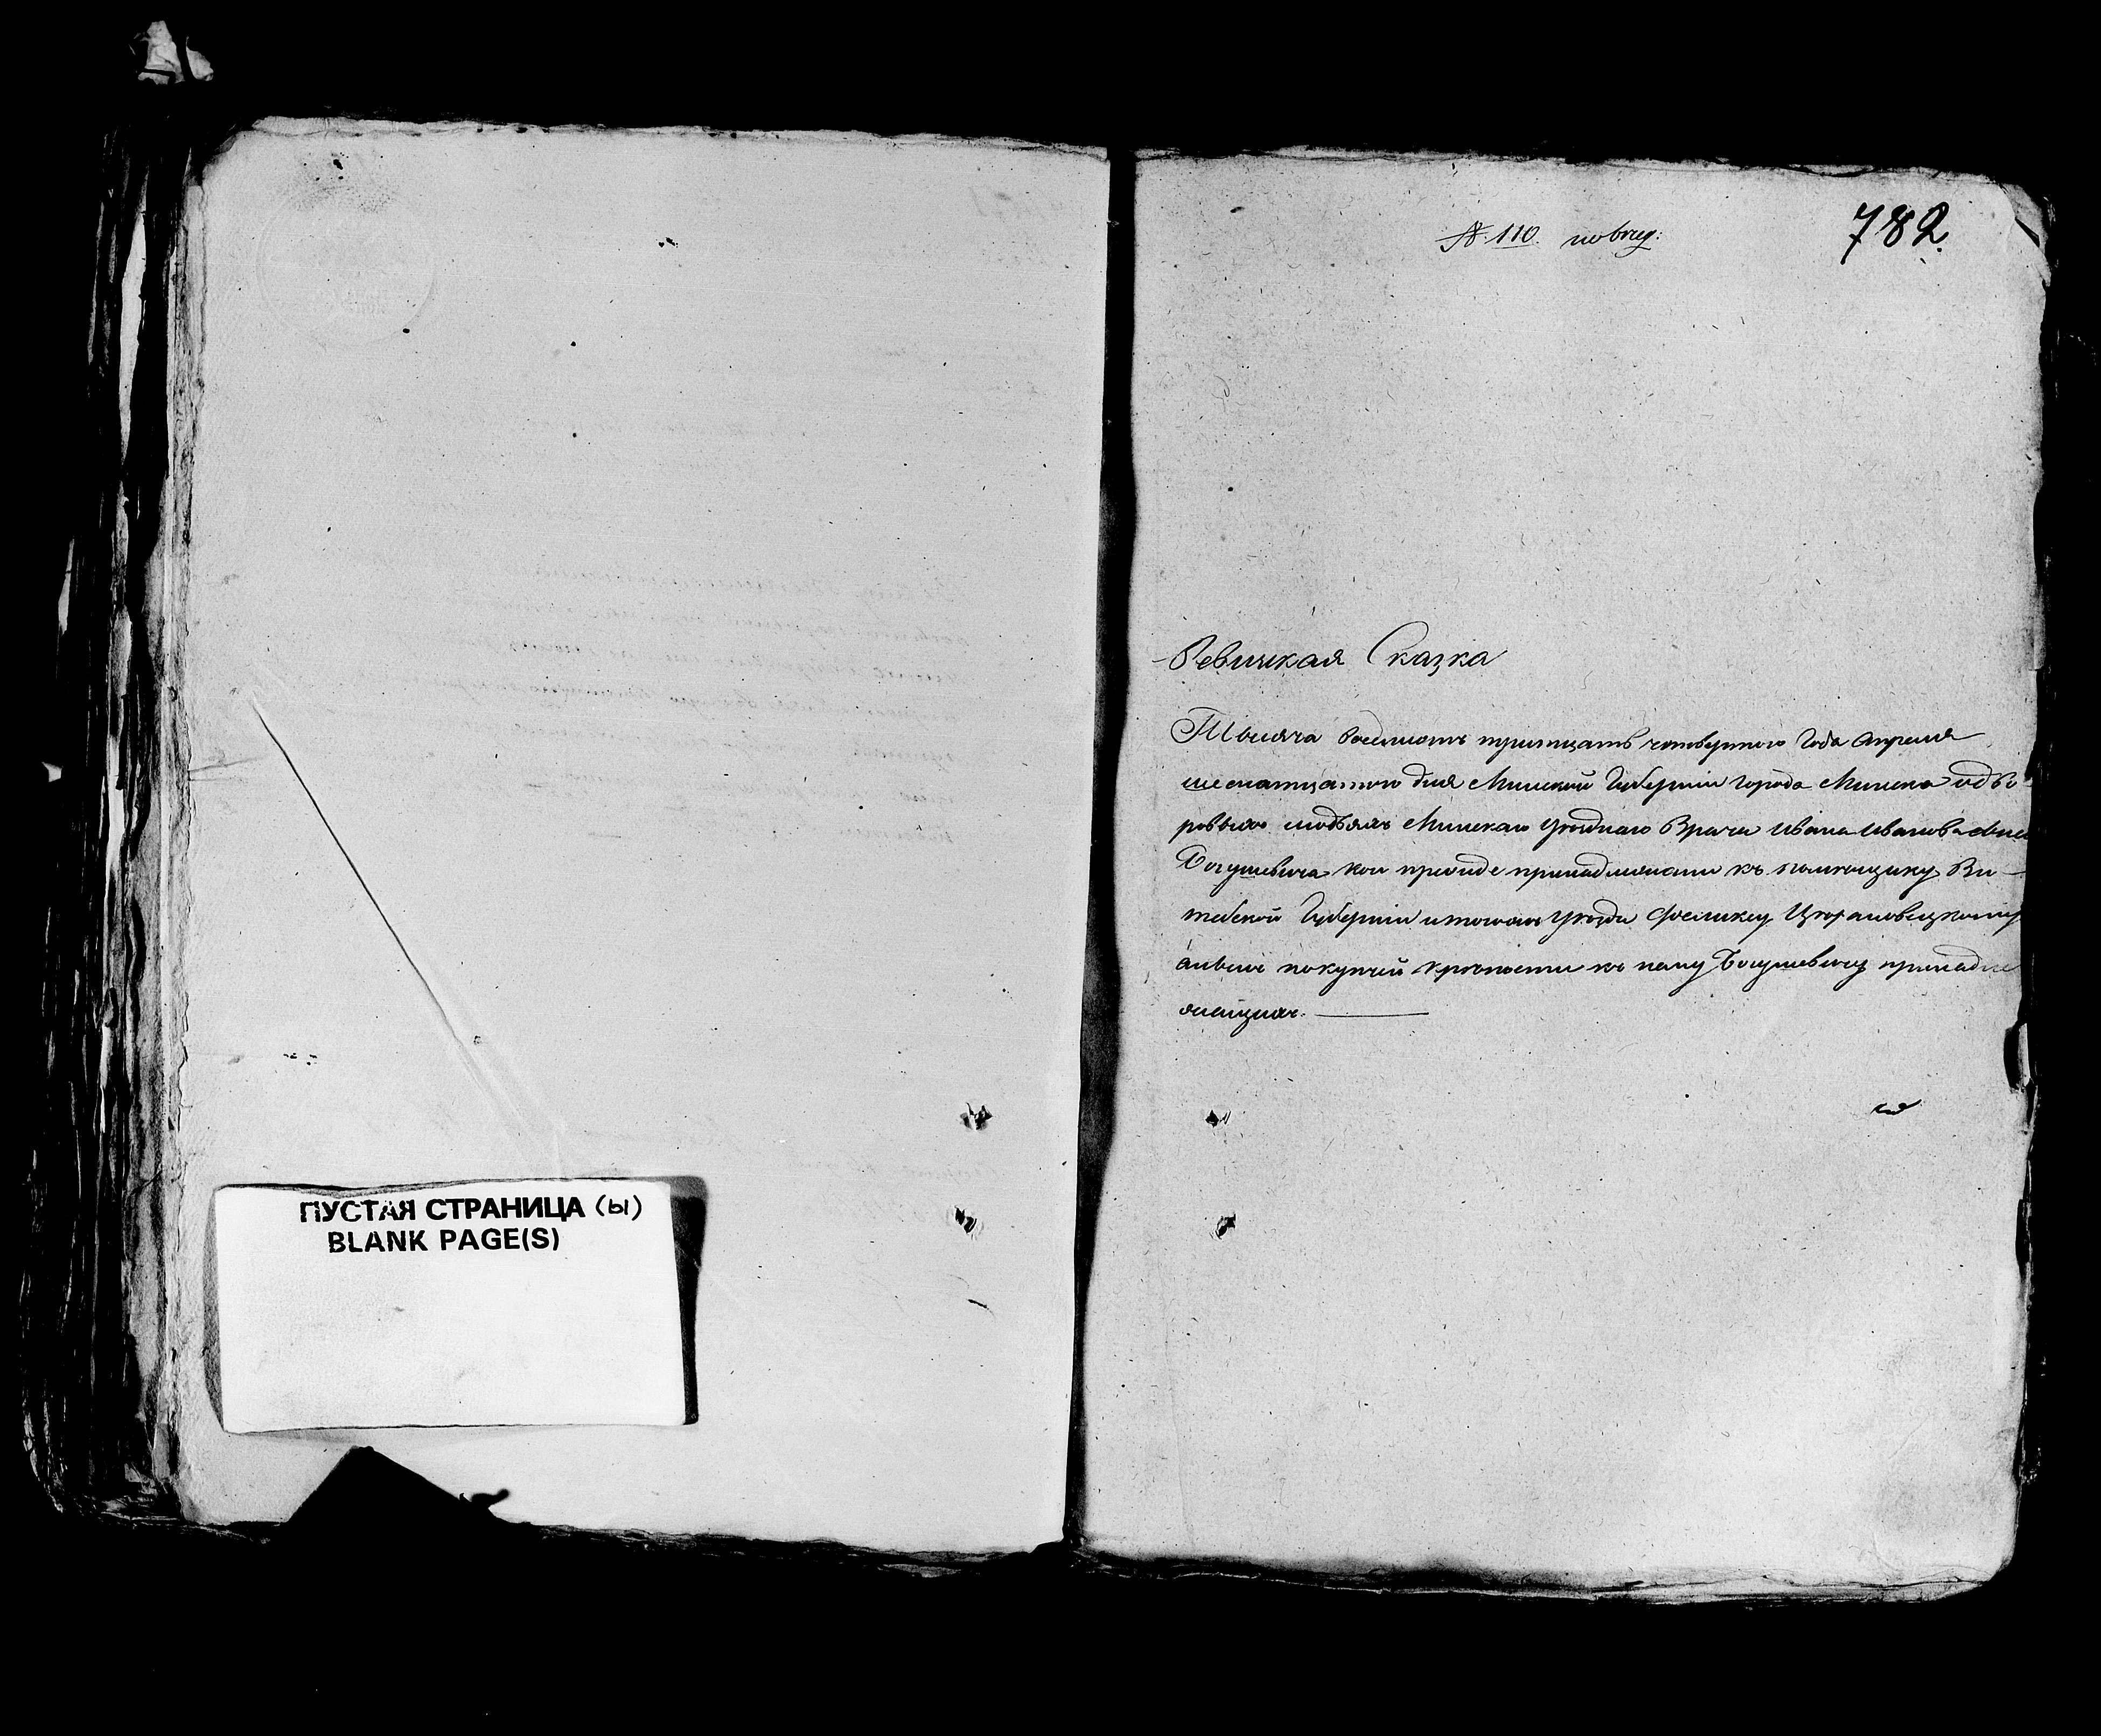 ПУСТАЯ СТРАНИЦА (ы)
BLANK PAGE(S)
№ 110. по вѣд:
782.
Ревиская Сказка
Тысяча восемсотъ тритцать четвертого Года Апреля
шеснатцатого дня Минской Губерніи города Минска о дво
ровыхъ людѣяхъ Минскаго Уѣзднаго Врача Ивана Иванова сына
Богушевича кои прежде принадлежали къ помѣщику Ви-
тебской Губерніи и тогожъ Уѣзда Феликсу
аныне покупчей крѣпости къ нему Богушевичу принадле
жащихъ.